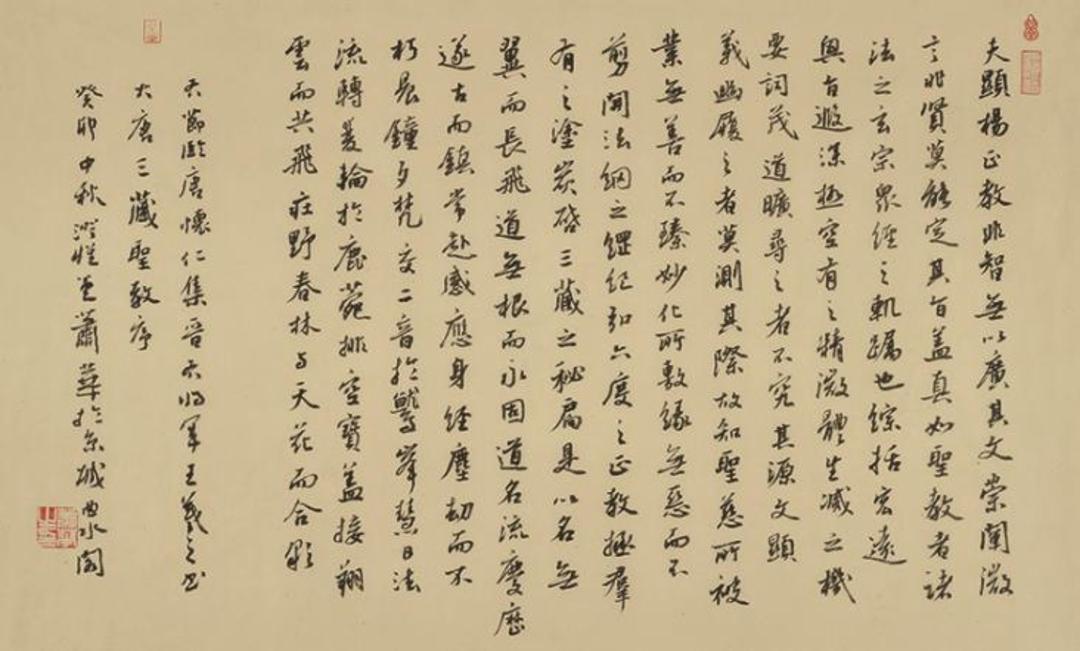 夫顯楊正教非智無以廣其文崇闡微
言非賢莫能定其旨蓋真如聖教者諸
法之玄宗眾經之軌躅也綜括宏遠
奧旨遐深極空有之精微體生滅之機
要詞茂道曠尋之者不究其源文顯
義幽履之者莫測其際故知聖慈所被
業無善而不臻妙化所敷緣無惡而不
剪開法網之綱紀弘六度之正教拯群
有之塗炭啓三藏之秘扃是以名無
翼而長飛道無根而永固道名流慶歷
遂古而鎮常赴感應身經塵劫而不
朽晨鐘夕梵交二音於鷲峯慧日法
流轉雙輪於鹿菀排空寶蓋接翔
雲而共飛莊野春林與天花而合彩
右節臨唐懷仁集晉右將軍王羲之書
大唐三藏聖教序
癸卯中秋 蕭華於京城曲水閣